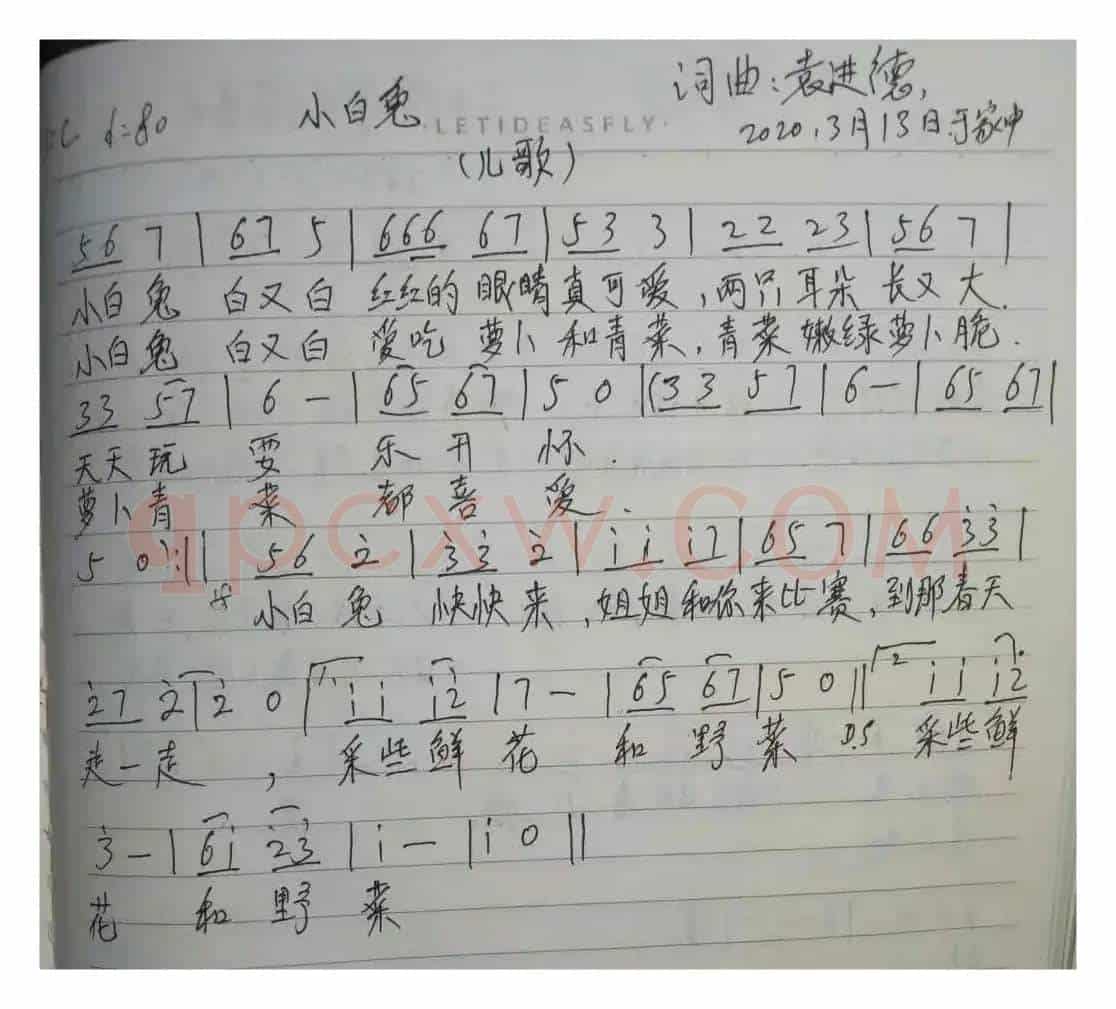 小白兔
词曲:袁进德,
=C d=80
·LETIDEASFLY·
2020.3月13日于家中
(儿歌)
56 7 | 67 5 | 666 67 | 53 3 | 22 23 | 56 7 |
小白兔 白又白 红红的眼睛真可爱,两只耳朵 长又大.
小白兔 白又白 爱吃 萝卜和青菜,青菜嫩绿萝卜脆.
33 57 | 6 - | 65 67 | 5 0 |(33 57 | 6 - | 65 67 |
天天玩 耍 乐开怀.
萝卜青 菜 都喜爱.
qpcxw.COM
5 0):|| 56 2̇ | 3̇3̇ 2̇ | i i i7 | 65 7 | 66 3̇3̇ |
小白兔 快快来,姐姐和你来比赛,到那春天
2̇7 2̇ | 2̇ 0 | 1. i i i2̇ | 7 - | 65 67 | 5 0 || 2 i i i2̇
走一走 , 采些鲜 花 和 野 菜 D.S 采些鲜
3̇ - | 6i 2̇3̇ | i - | i 0 ||
花 和 野 菜